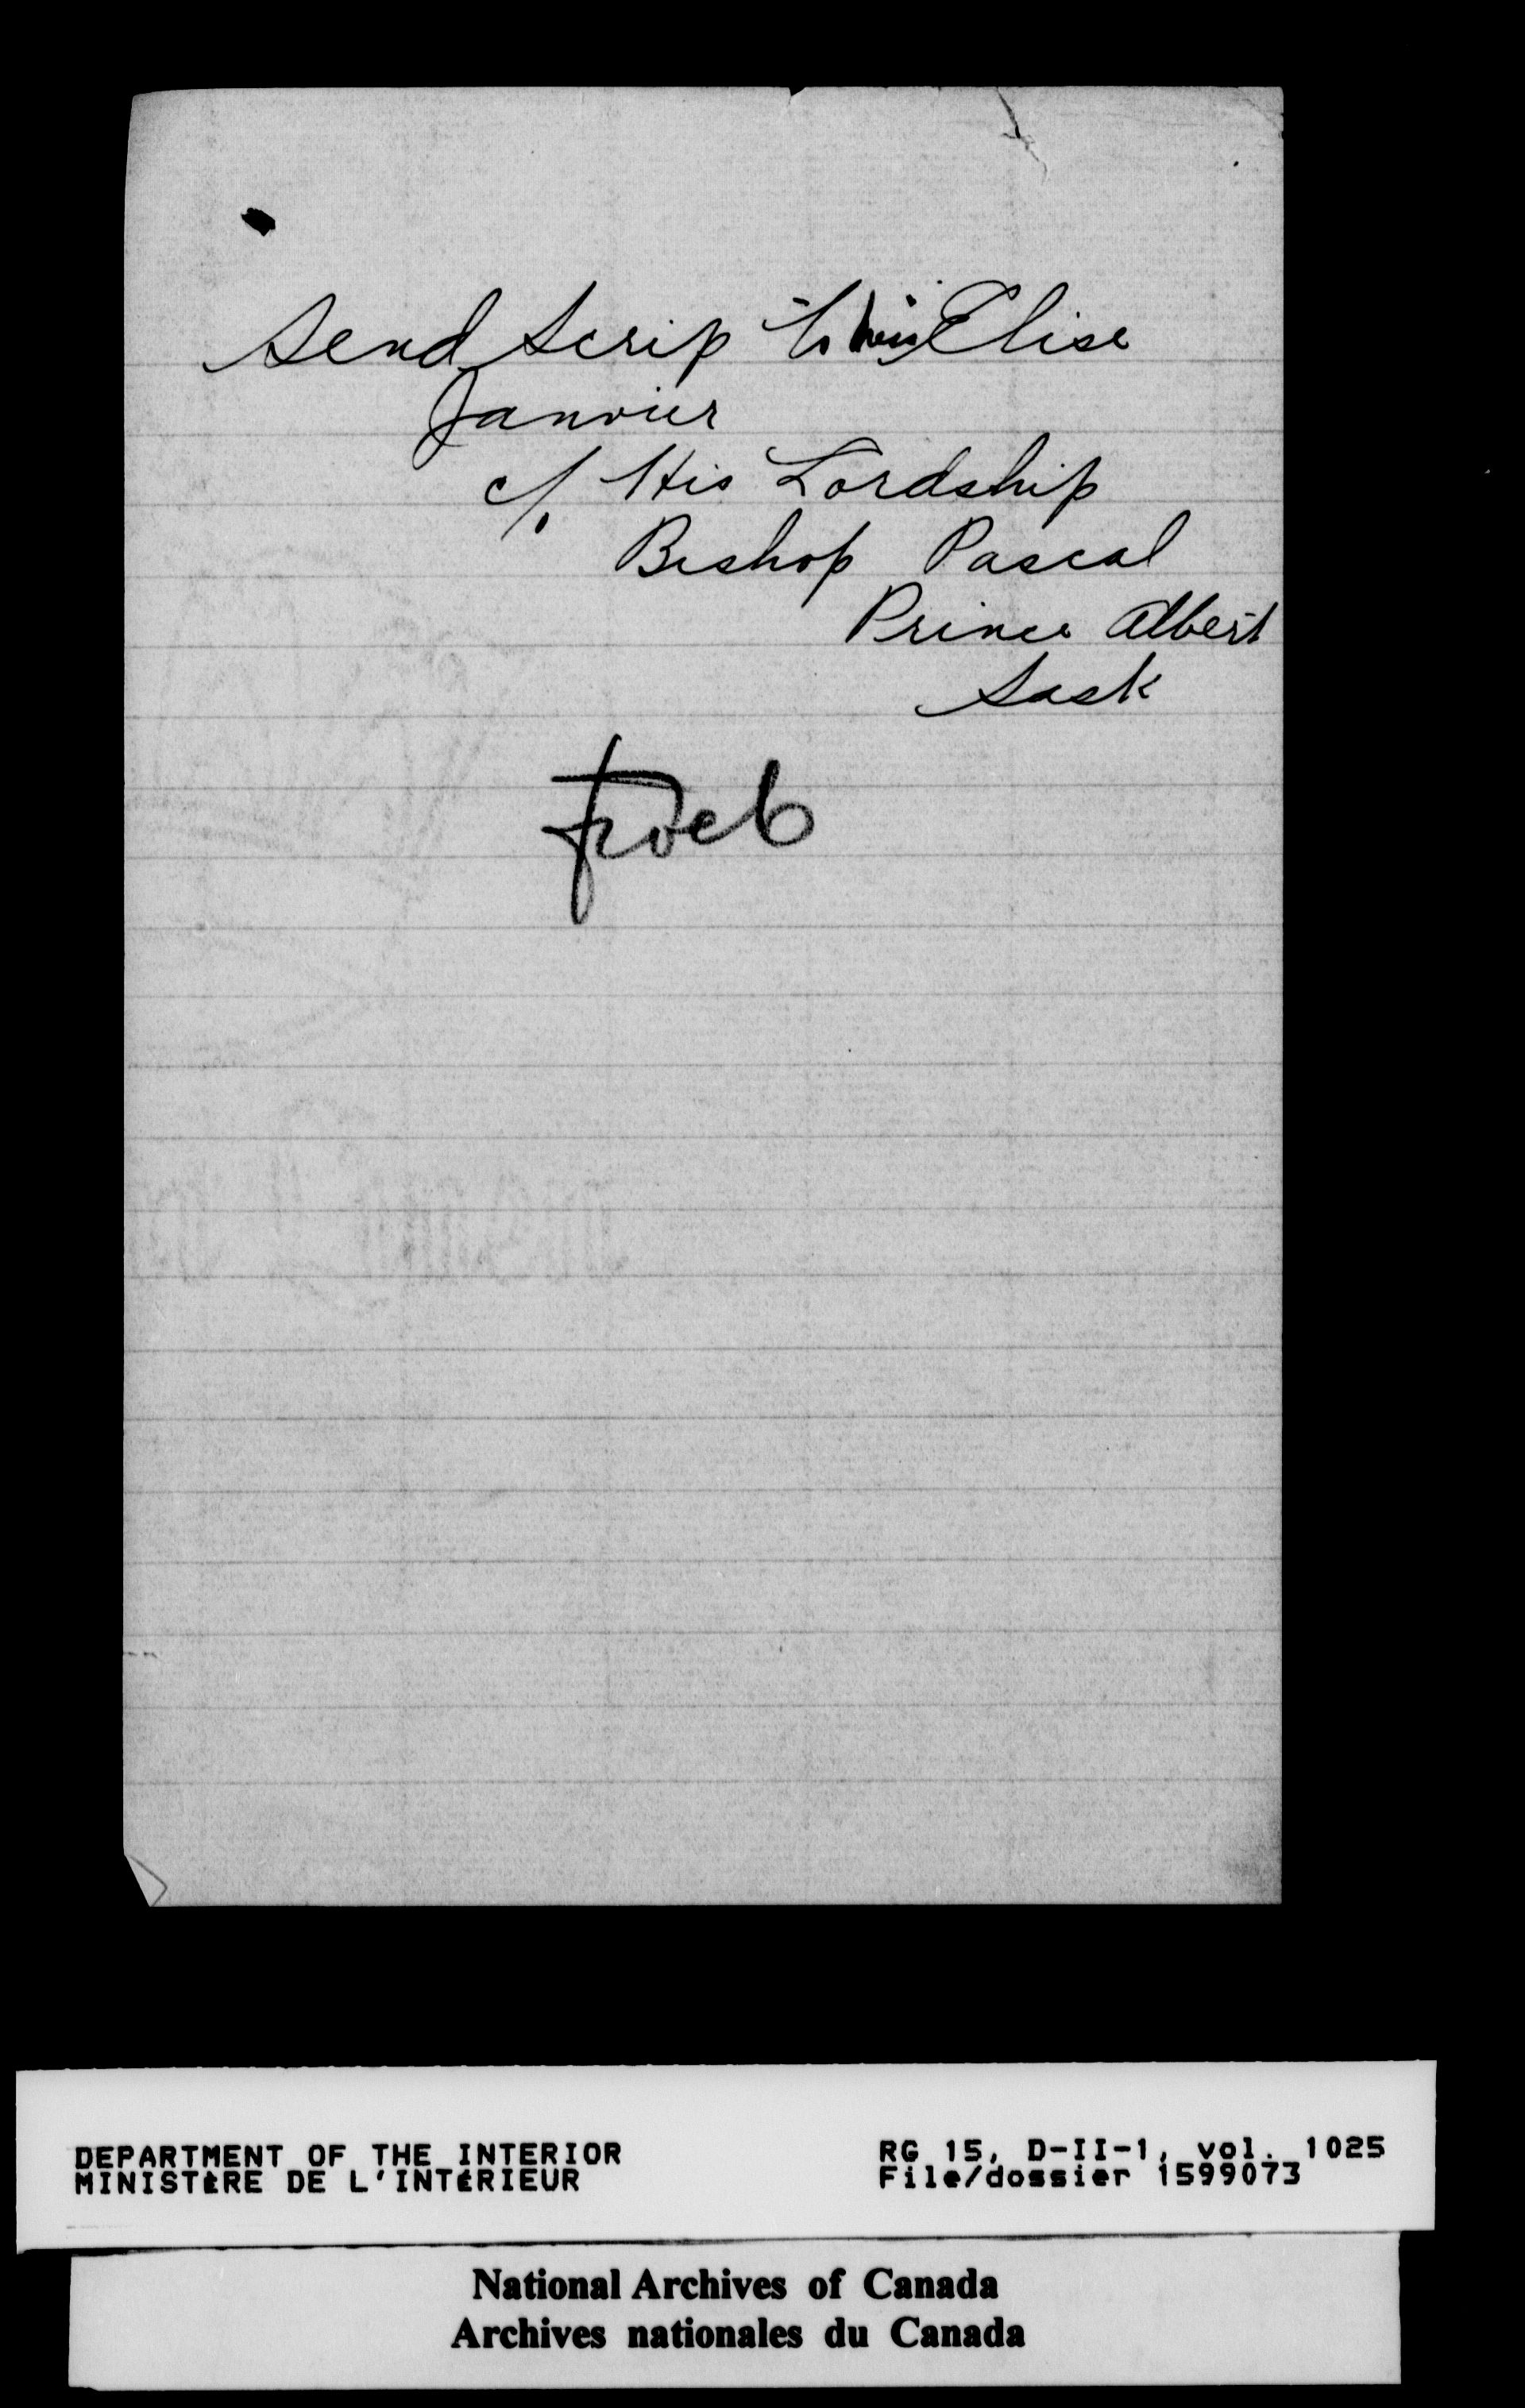 Send Scrip to Miss Elise
Janvier
c/. His Lordship
Bishop Pascal
Prince Albert
Sask
DEPARTMENT OF THE INTERIOR
MINISTÈRE DE L'INTÉRIEUR
RG 15, D-II-1, vol. 1025
File/dossier 1599073
National Archives of Canada
Archives nationales du Canada